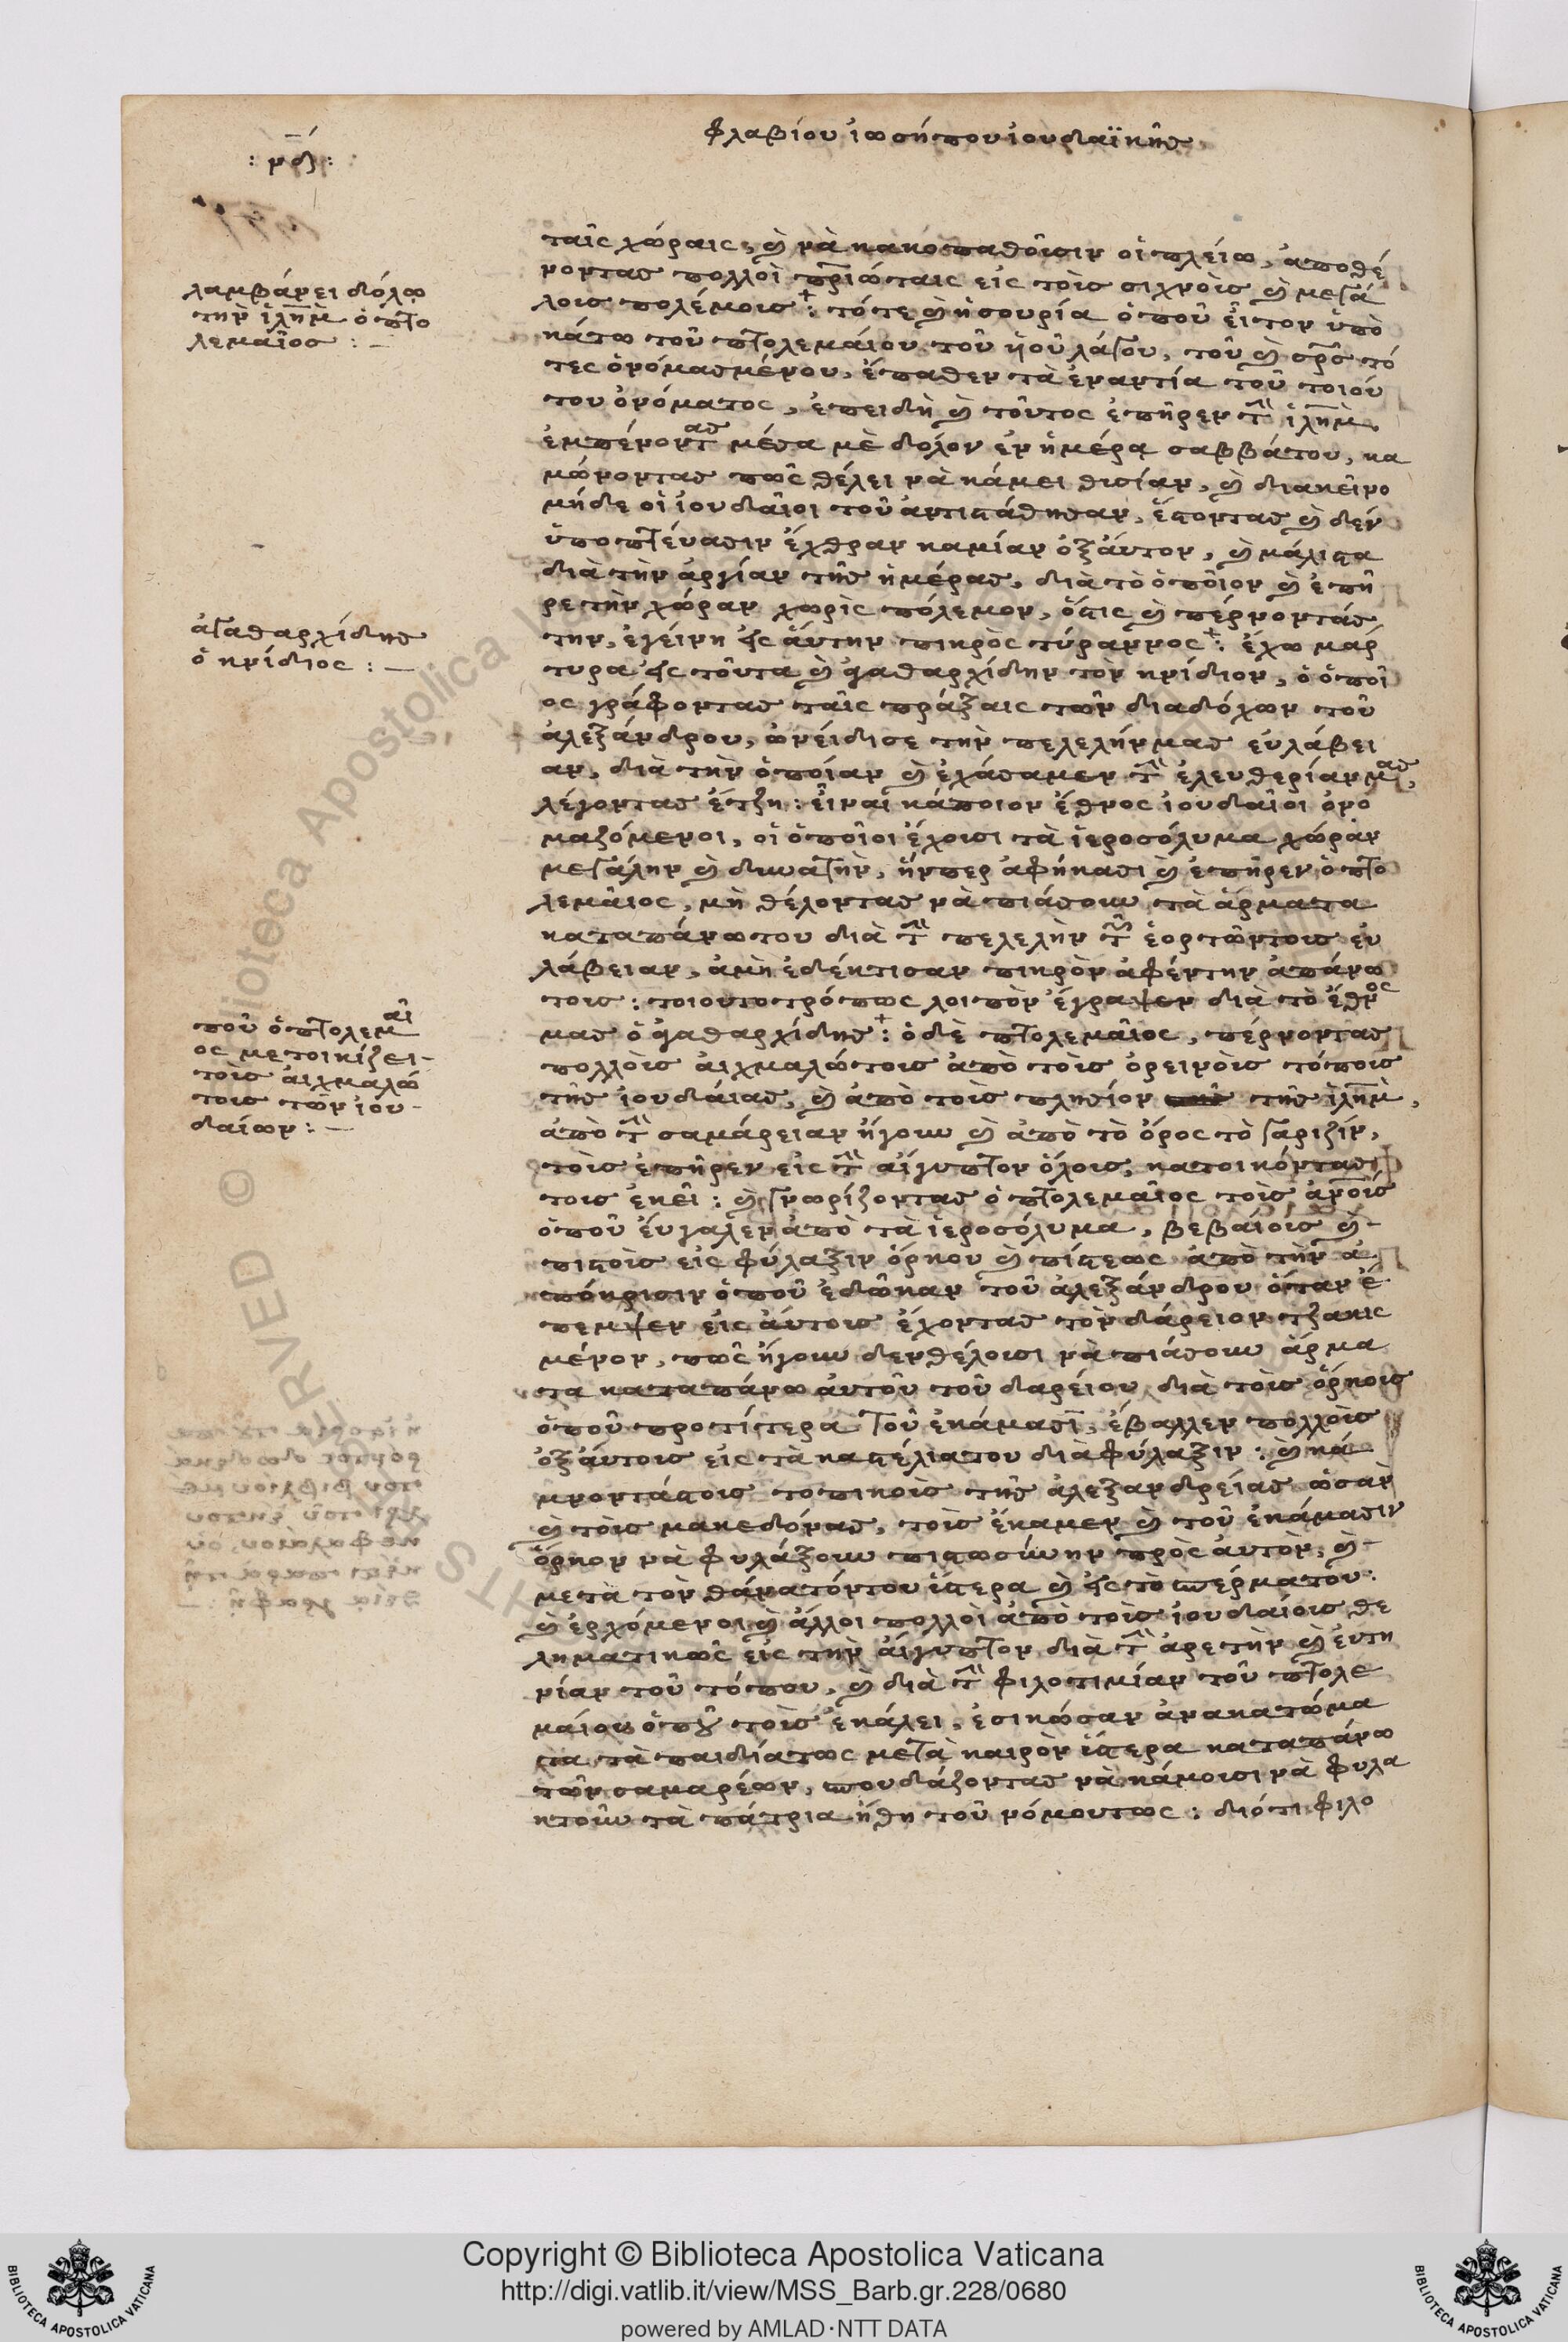 φλαβίου ἰωσήπου ἰουδαϊκῆς
: ρδλ :
ταῖς χώραις, καὶ νὰ κακοπαθοῦσιν οἱ πλείω, ἀποθέ
νοντας πολλοὶ στριώταις εἰς τοὺς συχνοὺς καὶ μεγά
λους πολέμους : τότε καὶ ἡ σουρία ὁποῦ εἶτον ὑπὸ
κάτω τοῦ πτολεμαίου τοῦ ἡοῦ λάγου, τοῦ καὶ σρς τό
τες ὀνόμασμένου, ἔπαθεν τὰ ἐναντία τοῦ τοιού
του ὀνόματος, ἐπειδὴ καὶ τοῦτος ἐπῆρεν τὴν ἱλημ
ἐμπένοντας μέσα μὲ δόλον ἐν ἡμέρᾳ σαββάτου, κα
μώνοντας πῶς θέλει νὰ κάμει θυσίαν, καὶ διακεῖνο
μήδε οἱ ἰουδαῖοι τοῦ ἀντιστάθησαν, ἔστοντας καὶ δὲν
ὑποπτεύασιν ἔχθραν καμίαν ὀξάυτον, καὶ μάλιστα
διὰ τὴν ἀργίαν τῆς ἡμέρας, διὰ τὸ ὁποῖον καὶ ἐπῆ
ρε τὴν χώραν χωρὶς πόλεμον, ὅστις καὶ πέρνοντάς
την, ἐγείρη εἰς ἄυτην πικρὸς τύραννος : ἔχω μάρ
τυρα εἰς τοῦτα καὶ ἀγαθαρχίδην τὸν κνίδιον, ὁ ὁποῖ
ος γράφοντας ταῖς πράξαις τῶν διαδόχων τοῦ
ἀλεξάνδρου, ὠνείδισε τὴν πελελήν μας εὐλάβει
αν, διὰ τὴν ὁποίαν καὶ ἐχάσαμεν τὴν ἐλευθερίαν μας,
λέγοντας ἔτζη : εἶναι κάποιον ἔθνος ἰουδαῖοι ὀνο
μαζόμενοι, οἱ ὁποῖοι ἔχουσι τὰ ἱεροσόλυμα χώραν
μεγάλην καὶ δυνατὴν, ἥνπερ ἀφήκασι καὶ ἐπῆρεν ὁ πτο
λεμαῖος, μὴ θέλοντας νὰ πιάσουν τὰ ἄρματα
καταπάνωτου διὰ τὴν πελελὴν τῶν ἑορτῶντους εὐ
λάβειαν, ἀμὴ ἐδέκτισαν πικρὸν ἀφέντην ἀπάνω
τους : τοιουτοτρόπως λοιπὸν ἔγραψεν διὰ τὸ ἔθνος
μας ὁ ἀγαθαρχίδης : ὁδὲ πτολεμαῖος, πέρνοντας
πολλοὺς αἰχμαλώτους ἀπὸ τοὺς ὀρεινοὺς τόπους
τῆς ἰουδαίας, καὶ ἀπὸ τοὺς πλησίον τῆς ἱλημ,
ἀπὸ τὴν σαμάρειαν ἤγουν καὶ ἀπὸ τὸ ὄρος τὸ γαριζὶν,
τοὺς ἐπῆρεν εἰς τὴν αἴγυπτον ὅλους, κατοικόντας
τους ἐκεῖ : καὶ γνωρίζοντας ὁ πτολεμαῖος τοὺς ἀνοὺς
ὁποῦ ἔυγαλεν ἀπὸ τὰ ἱεροσόλυμα, βεβαίους καὶ
πιστοὺς εἰς φύλαξιν ὅρκου καὶ πίστεως ἀπὸ τὴν ἀ
πόκρισιν ὁποῦ ἐδῶκαν τοῦ ἀλεξάνδρου ὅταν ἔ
πεμψεν εἰς ἄυτους ἔχοντας τὸν δάρειον τζακις
μένον, πῶς ἤγουν δενθέλουσι νὰ πιάσουν ἄρμα
τα καταπάνω ἀυτοῦ τοῦ δαρείου διὰ τοὺς ὅρκους
ὁποῦ προτίτερα τοῦ ἐκάμασι, ἔβαλλεν πολλοὺς
ὀξάυτους εἰς τὰ καστέλιατου διὰ φύλαξιν : καὶ κά
μνοντάστους τοπικοὺς τῆς ἀλεξανδρείας ὡσὰν
καὶ τοὺς μακεδόνας, τοὺς ἔκαμεν καὶ τοῦ ἐκάμασιν
ὅρκον νὰ φυλάξουν πιστωσύνην πρὸς ἀυτὸν, καὶ
μετὰ τὸν θάνατόντου ὕστερα καὶ εἰς τὸ σπέρματου :
καὶ ἐρχόμενοι καὶ ἄλλοι πολλοὶ ἀπὸ τοὺς ἰουδαίους θε
ληματικῶς εἰς τὴν αἴγυπτον διὰ τὴν ἀρετὴν καὶ ἐυτη
νίαν τοῦ τόπου, καὶ διὰ τὴν φιλοτιμίαν τοῦ πτολε
μαίου ὁποῦ τοὺς ἐκάλει, ἐσικώσαν ἀνακατώμα
τα τὰ παιδίατως μετὰ καιρὸν ὕστερα καταπάνω
τῶν σαμαρέων, σπουδάζοντας νὰ κάμουσι νὰ φυλα
κτοῦν τὰ πάτρια ἤθη τοῦ νόμουτως : διότι φιλο
λαμβάνει δόλῳ
τὴν ἱλημ ὁ πτο
λεμαῖος : —
ἀγαθαρχίδης
ὁ κνίδιος : —
ποῦ ὁ πτολεμαῖ
ος μετοικίζει
τοὺς ἀιχμαλώ
τους τῶν ἰου-
δαίων : —
Copyright © Biblioteca Apostolica Vaticana
http://digi.vatlib.it/view/MSS_Barb.gr.228/0680
powered by AMLAD·NTT DATA